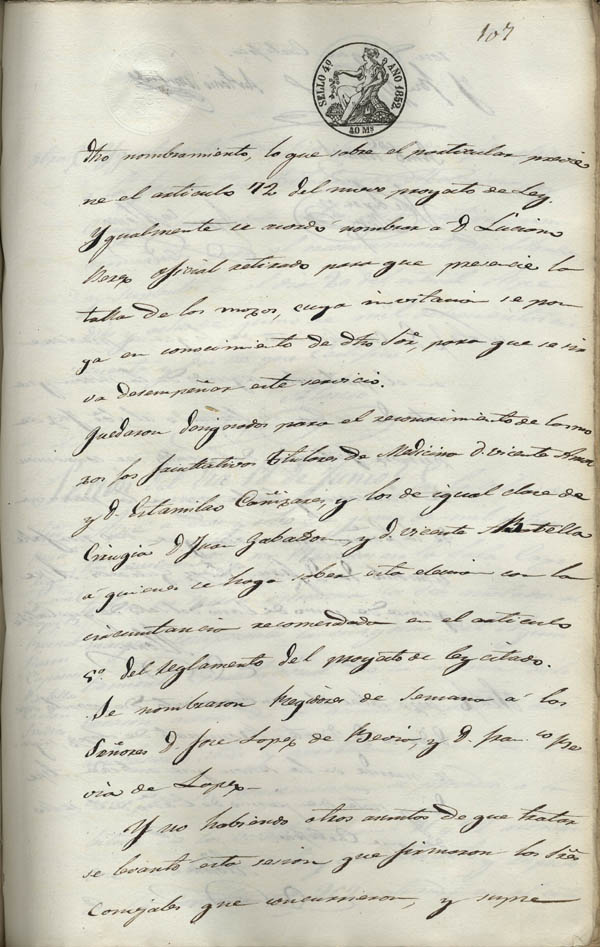 107
SELLO 4º AÑO 1852.
40 Ms
dho nombramiento, lo que sobre el particular previe
ne el articulo 72 del nuevo proyecto de Ley.
Ygualmente se acordó nombrar á D. Luciano
Berez oficial retirado para que presencie la
talla de los mozos, cuya invitacion se pon
ga en conocimiento de dho Sor, para que se sir
va desempeñar este servicio.
Quedaron designados para el reconocimiento de los mo
zos los facultativos titulares de Medicina D. Vicente
y D. Estanislao Cañizares, y los de igual clase de
Cirugia D. Juan Zabadon y D. Vicente
a quienes se haga saber esta eleccion con la
circunstancia recomendada en el articulo
5º del reglamento del proyecto de ley citado.
Se nombraron Regidores de Semana á los
Señores D. Jose Lopez de Bevia, y D. Fran.co Be
via de Lopez.
Y no habiendo otros asuntos de que tratar
se levantó esta sesion que firmaron los Sres
Concejales que concurrieron, y supie